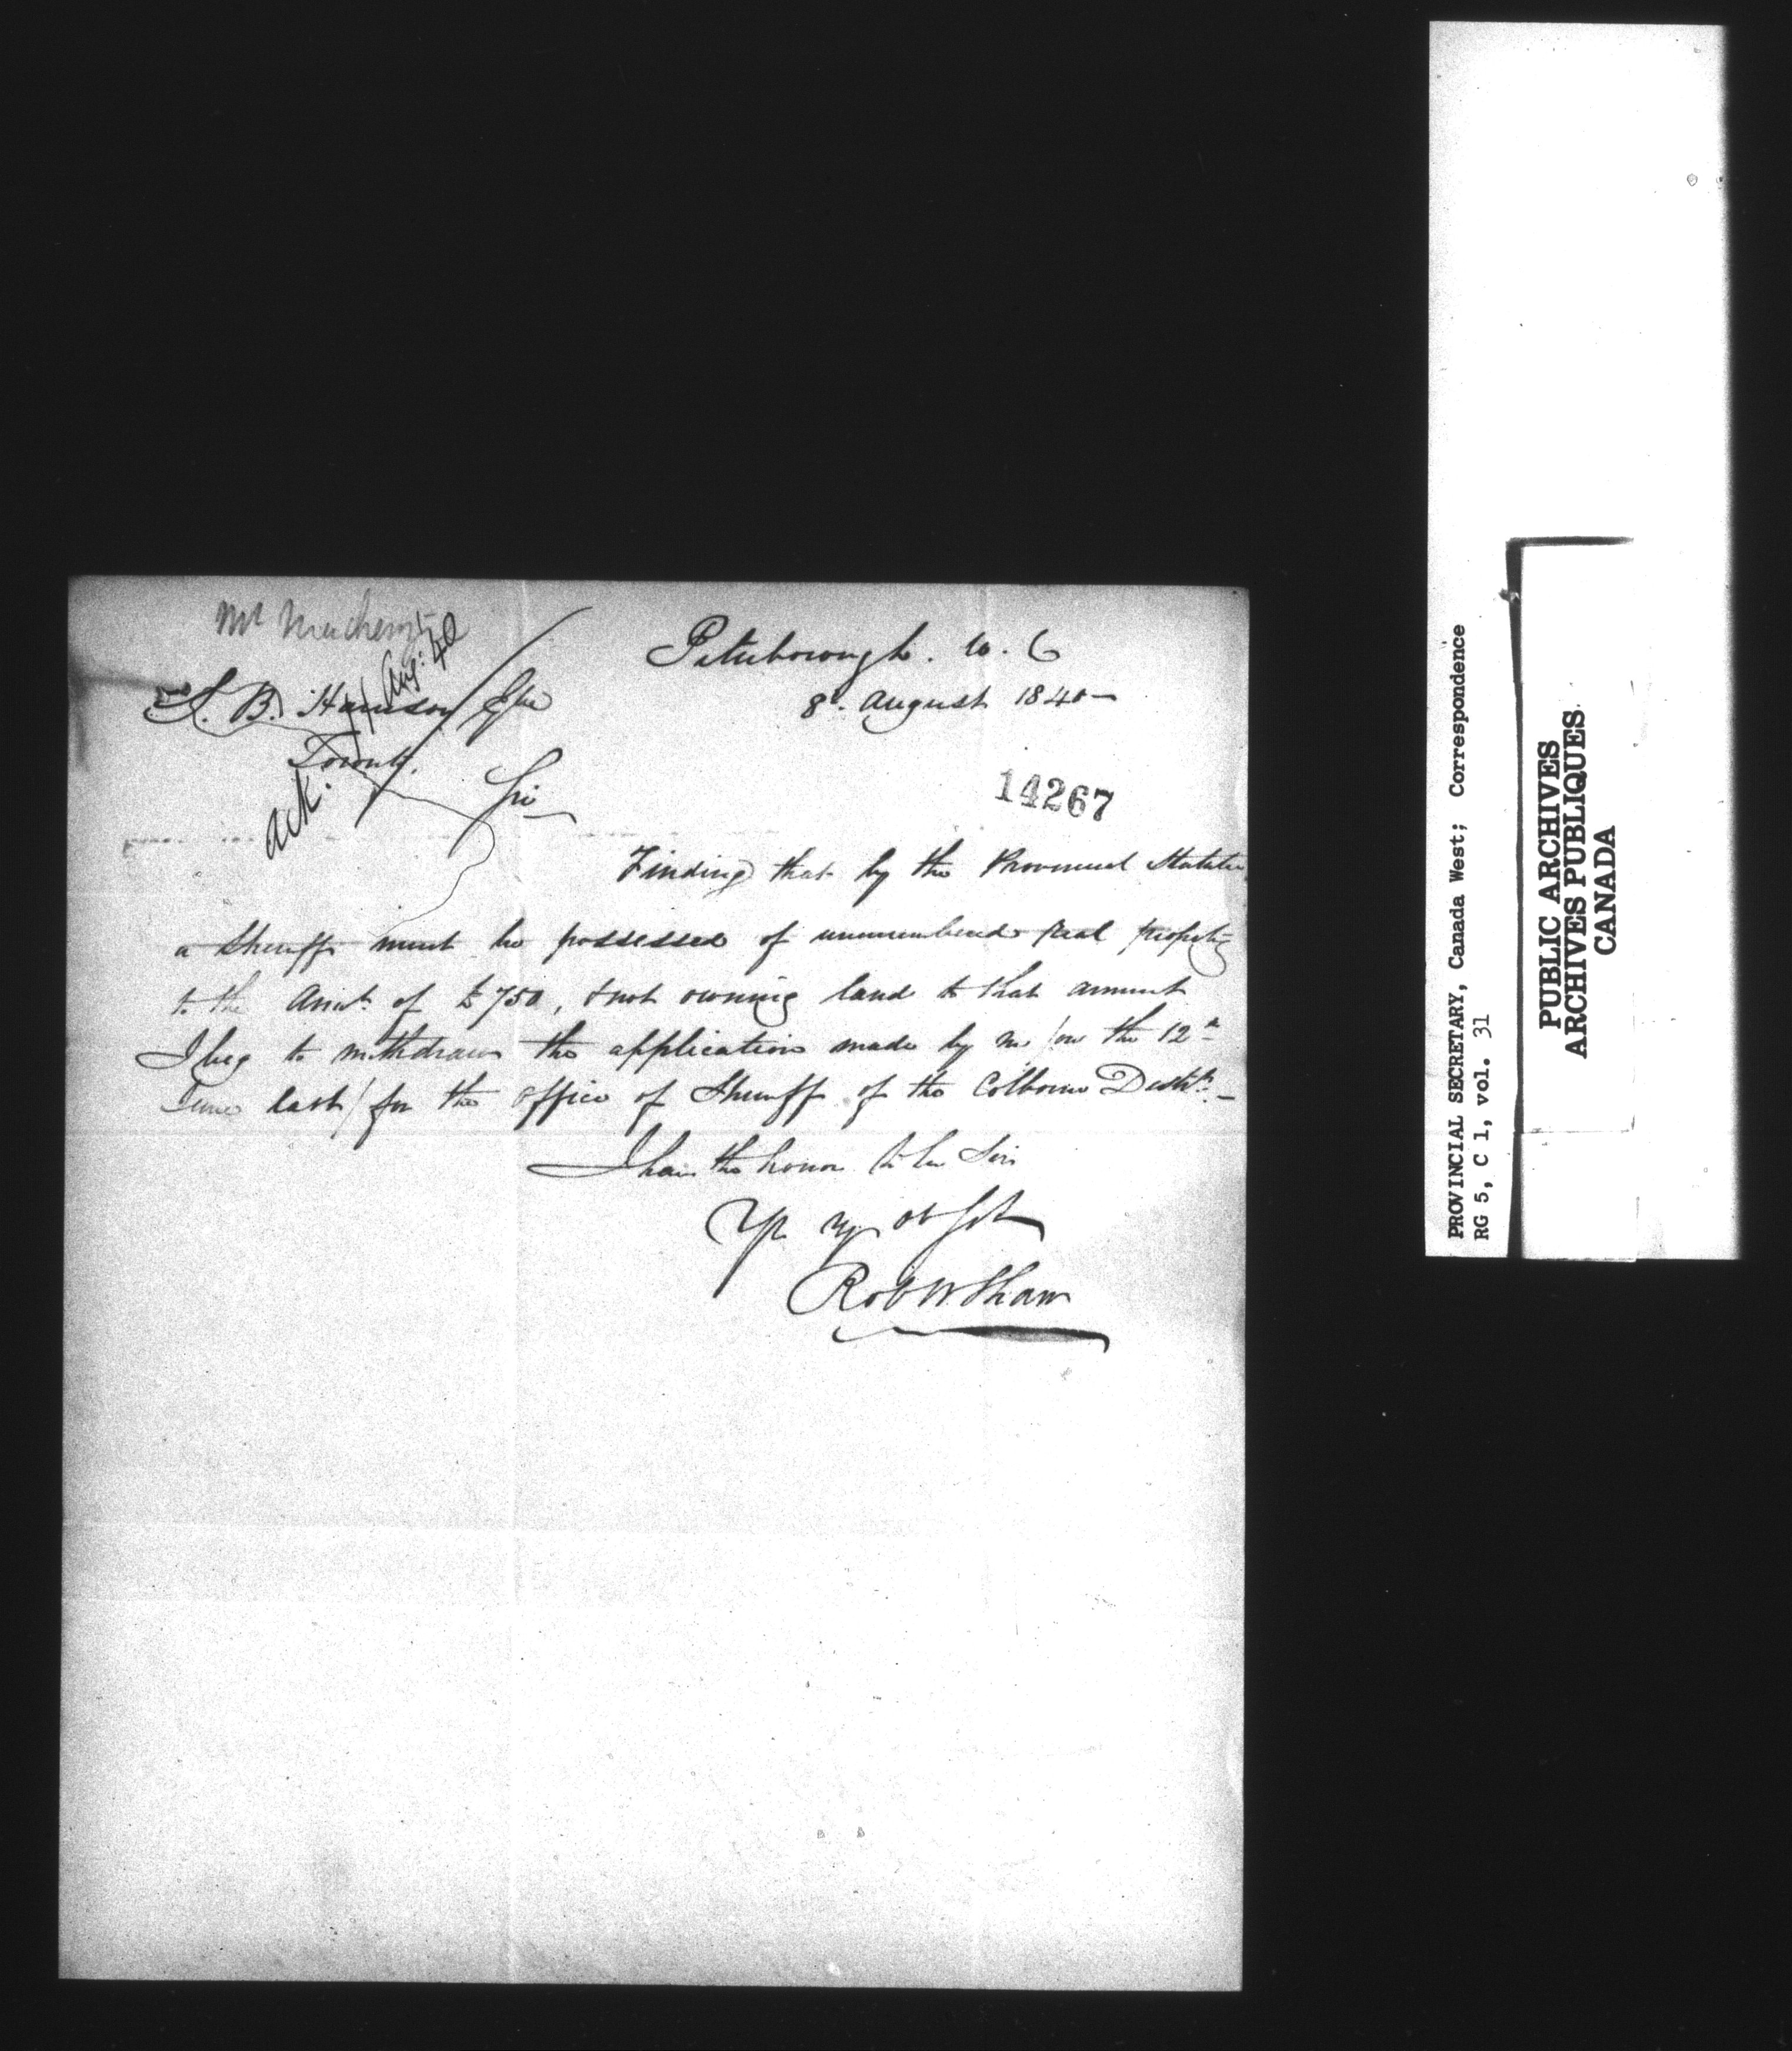 Peterborough. U. C
8th. August 1840—
S. B. Harrison Esqr
Toronto.
Ack: 11 Aug: 40
Sir
14267
Finding that by the Provincial Statute
a Sheriff must be possessed of unincumbered real property
to the Amt. of £750, & not owning land to that amount
I beg to withdraw the application made by me /on the 12th
June last/ for the office of Sheriff of the Colborne Distt.—
I have the honor to be Sir
Yr. ob Sert
Rob W Shaw
PROVINCIAL SECRETARY, Canada West; Correspondence
RG 5, C 1, vol. 31
PUBLIC ARCHIVES
ARCHIVES PUBLIQUES
CANADA